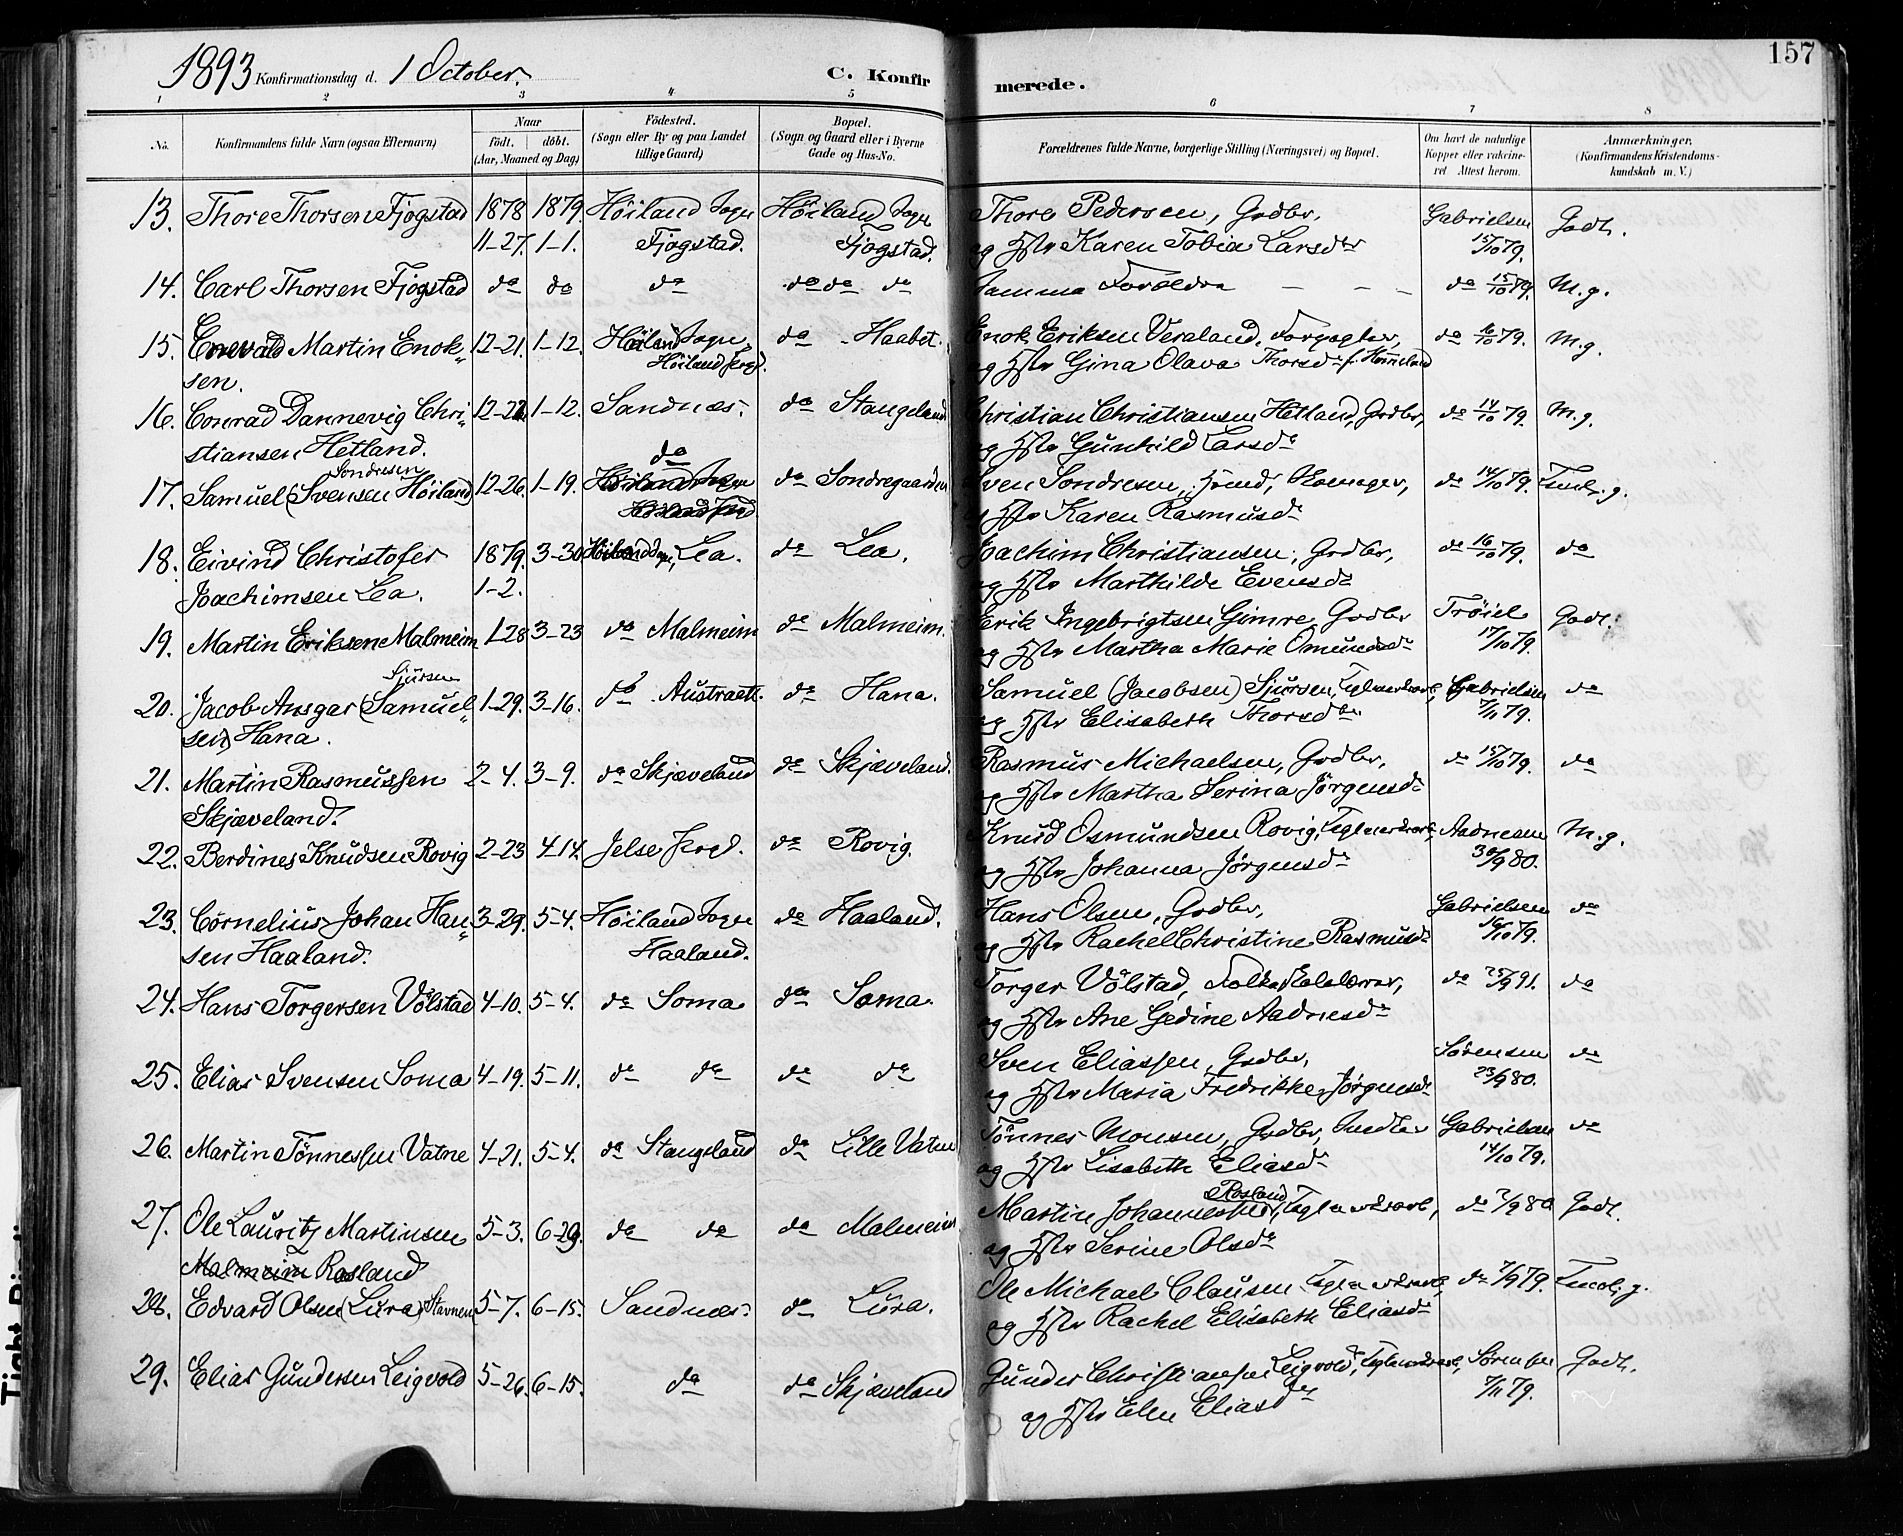 157
1893 Konfirmationsdag d. 1 October. C. Konfirmerede.
1 2 3 4 5 6 7 8
No. Konfirmandens fulde Navn (ogsaa Efternavn) Naar födt. döbt. (Aar, Maaned og Dag) Födested. (Sogn eller By og paa Landet tillige Gaard) Bopæl. (Sogn og Gaard eller i Byerne Gade og Hus-No. Forældrenes fulde Navne, borgerlige Stilling (Næringsvei) og Bopæl. Om havt de naturlige Kopper eller vakcineret Attest herom. Anmærkninger, (Konfirmandens Kristendomskundskab m. V.)
13. Thore Thorsen Fjogstad 1878 1879 Höiland Sogn Höiland Sogn Thore Pedersen, Grdbr, Gabrielsen Godt.
11-27. 1-1. Fjogstad. Fjogstad. og Hstr Karen Tobia Larsdr 15/10 79.
14. Carl Thorsen Fjogstad do do do do do do Samme Forældre — — — do 15/10 79. M.g.
15. Enevald Martin Enok- 12-21. 1-12. Höiland Sogn, do Haabet. Enok Eriksen Veraland, Forpagter, do 16/10 79. M.g.
sen. Höiland Prgd. og Hstr Gina Olava Thorsdr f. Hommeland
16. Conrad Dannevig Chri- 12-22. 1-12. Sandnæs. do Stangeland Christian Christiansen Hetland, Grdbr, do 14/10 79. M.g.
stiansen Hetland. og Hstr Gunhild Larsdr
Sondresen do
17. Samuel (Svensen Höiland) 12-26. 1-19. Höiland Sogn do Sondregaarden Sven Sondresen, Hsmd, Skomager, do 14/10 79. Tmel. g.
Höiland Prgd. og Hstr Karen Rasmusdr
18. Eivind Christofer 1879. 3-30 Höiland Sogn, Lea. do Lea. Joachim Christiansen, Grdbr, do 16/10 79. do
Joachimsen Lea. 1-2. og Hstr Marthilde Evensdr
19. Martin Eriksen Malmeim 1-28 3-23 do Malmeim do Malmeim. Erik Ingebrigtsen Gimre, Grdbr Tröiel Godt.
og Hstr Martha Marie Omundsdr 17/10 79.
Sjursen
20. Jacob Ansgar (Samuel- 1-29. 3-16. do Austraat. do Hana. Samuel (Jacobsen) Sjursen, Teglværksarb, Gabrielsen do
sen) Hana. og Hstr Elisabeth Thorsdr 7/11 79.
21. Martin Rasmussen 2-4. 3-9. do Skjæveland do Skjæveland. Rasmus Michaelsen, Grdbr, do 15/10 79. do
Skjæveland. og Hstr Martha Serina Jörgensdr
22. Berdines Knudsen Rovig 2-23 4-14. Jelse Prgd. do Rovig. Knud Osmundsen Rovig, Teglværksarb, Aadnesen M.g.
og Hstr Johanna Jörgensdr 30/9 80.
23. Cornelius Johan Han- 3-29. 5-4. Höiland Sogn do Haaland. Hans Olsen, Grdbr, Gabrielsen do
sen Haaland. Haaland. og Hstr Rachel Christine Rasmusdr 16/10 79.
24. Hans Torgersen Völstad 4-10. 5-4. do Soma do Soma. Torger Völstad, Folkeskolelærer, do 25/9 91. do
og Hstr Ane Gedine Aadnesdr
25. Elias Svensen Soma 4-19. 5-11. do do do do Sven Eliassen, Grdbr, Sörensen do
og Hstr Maria Fredrikke Jörgensdr 23/9 80.
26. Martin Tönnessen Vatne 4-21. 5-4. do Stangeland do Lille Vatne Tönnes Monsen, Grdbr, Snedker Gabrielsen do
og Hstr Lisabeth Eliasdr 14/10 79.
Rosland
27. Ole Lauritz Martinsen 5-3. 6-29. do do do Malmeim Martin Johannessen, Teglværksarb, do 2/9 80 Godt.
Malmeim Rosland og Hstr Serine Olsdr
28. Edvard Olsen (Lura) Stavnem 5-7. 6-15. Sandnæs. do Lura. Ole Michael Clausen Teglværksarb, do 7/9 79. Tmel. g.
og Hstr Rachel Elisabeth Eliasdr
29. Elias Gundersen Leigvold 5-26. 6-15. do do Skjæveland Gunder Christiansen Leigvold, Teglværksarb, Sörensen Godt.
og Hstr Elen Eliasdr 7/11 79.